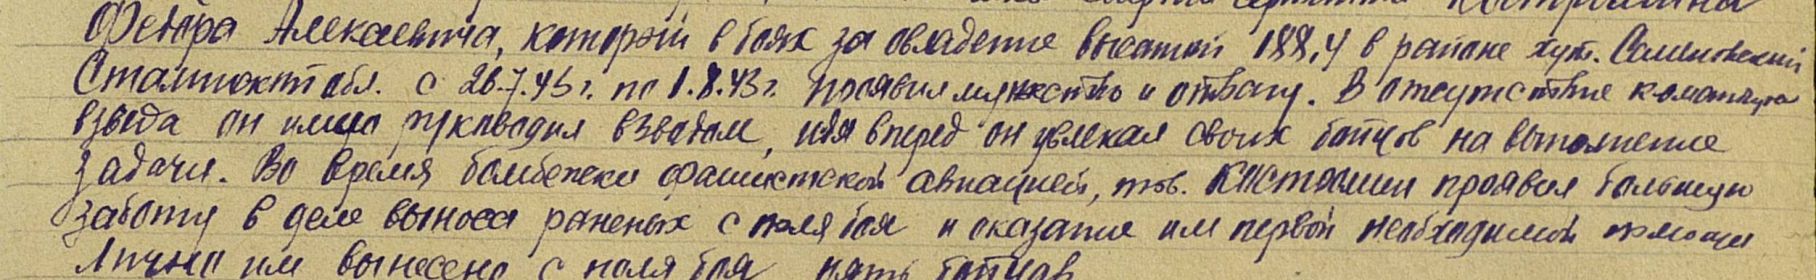 старшего сержанта Костромина
Федора Алексеевича, который в боях за овладение высотой 188,4 в районе хут. Семеновский
Сталинской обл. с 26.7.43 г. по 1.8.43 г. проявил мужество и отвагу. В отсутствие командира
взвода он умело руководил взводом, идя вперед он увлекал своих бойцов на выполнение
задачи. Во время бомбежки фашистской авиацией, тов. Костромин проявил большую
заботу в деле выноса раненых с поля боя и оказание им первой необходимой помощи
Лично им вынесено с поля боя пять бойцов